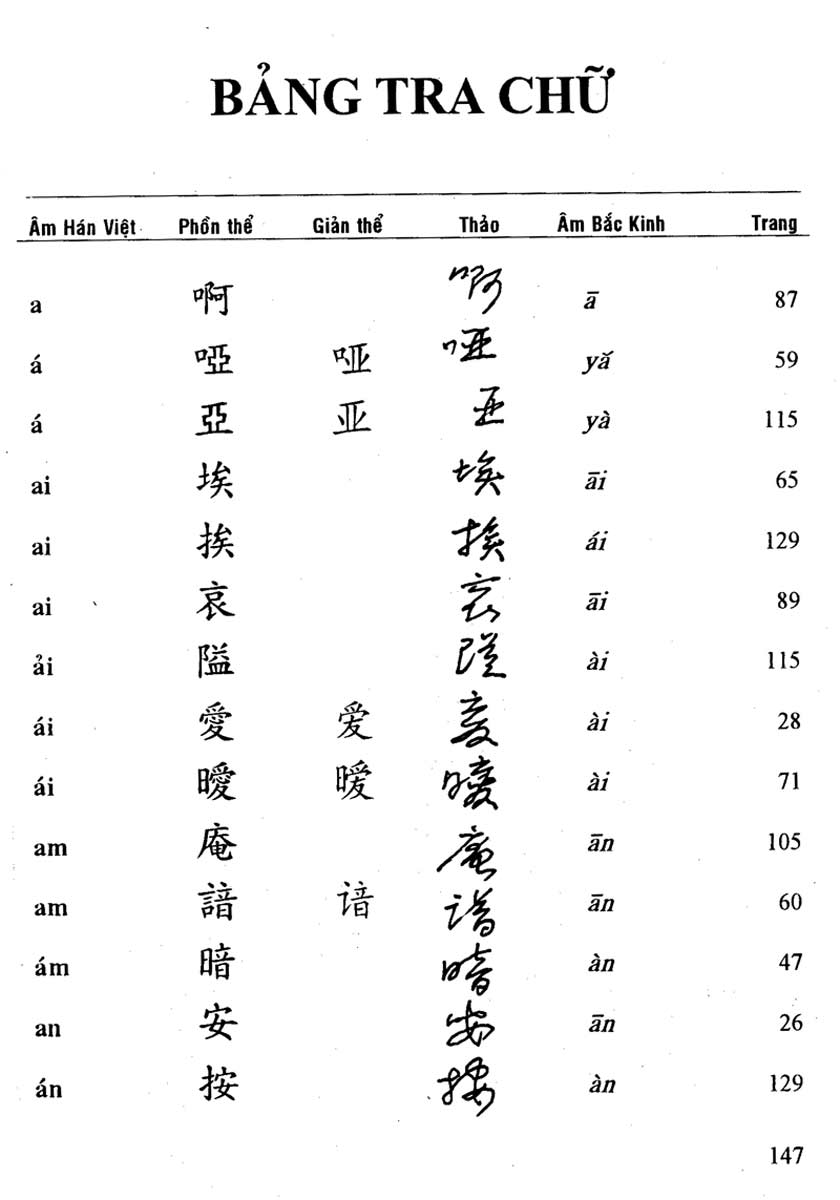 BẢNG TRA CHỮ
Âm Hán Việt Phồn thể Giản thể Thảo Âm Bắc Kinh Trang
a 啊 啊 ā 87
á 啞 哑 哑 yǎ 59
á 亞 亚 亚 yà 115
ai 埃 埃 āi 65
ai 挨 挨 ái 129
ai 哀 哀 āi 89
ải 隘 隘 ài 115
ái 愛 爱 爱 ài 28
ái 曖 暧 暧 ài 71
am 庵 庵 ān 105
am 諳 谙 谙 ān 60
ám 暗 暗 àn 47
an 安 安 ān 26
án 按 按 àn 129
147